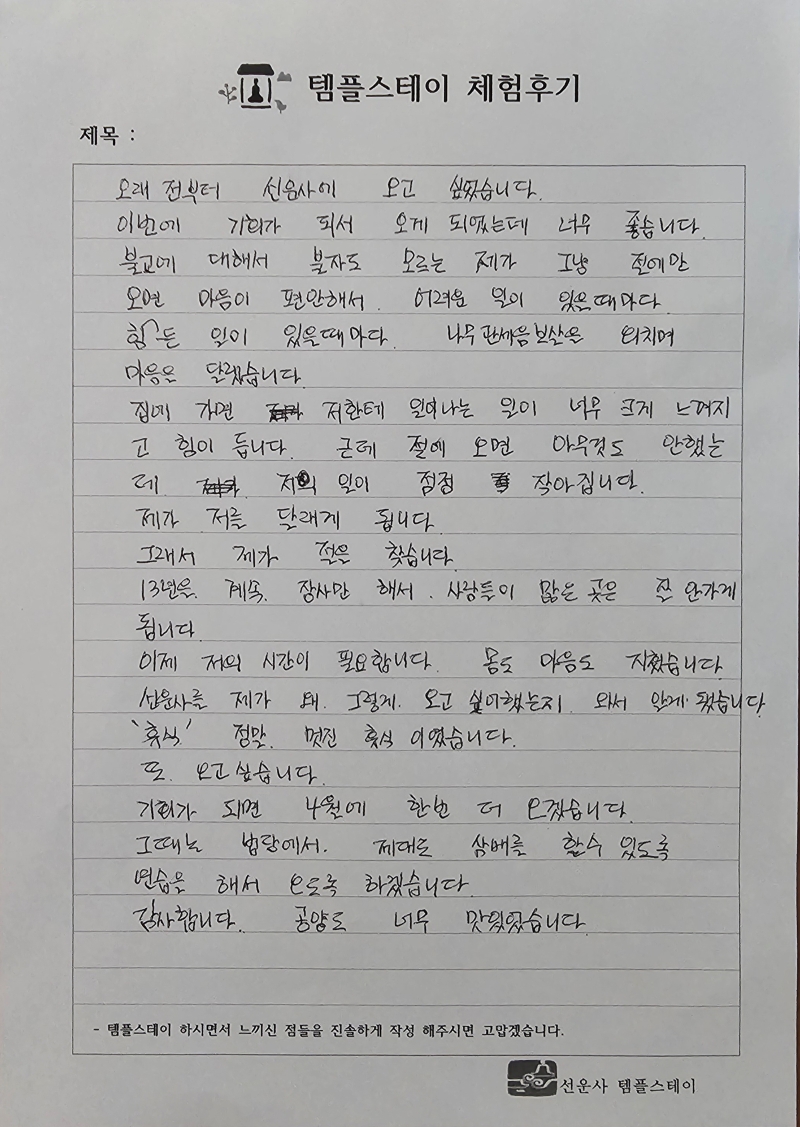 템플스테이 체험후기
제목 :
오래 전부터 선운사에 오고 싶었습니다.
이번에 기회가 되서 오게 되었는데 너무 좋습니다.
불교에 대해서 불자도 모르는 제가 그냥 절에만
오면 마음이 편안해서. 어려운 일이 있을때마다
힘든 일이 있을때마다. 나무관세음보살을 외치며
마음을 달랬습니다.
집에 가면 저한테 일어나는 일이 너무 크게 느껴지
고 힘이 듭니다. 근데 절에 오면 아무것도 안했는
데. 저의 일이 점점 작아집니다.
제가 저를 달래게 됩니다.
그래서 제가 절을 찾습니다.
13년을. 계속. 장사만 해서. 사람들이 많은 곳은 잘 안가게
됩니다.
이제 저의 시간이 필요합니다. 몸도 마음도 지쳤습니다.
선운사를 제가 왜. 그렇게. 오고 싶어했는지. 와서 알게 됐습니다.
'휴식' 정말. 멋진 휴식 이였습니다.
또. 오고싶습니다.
기회가 되면 4월에 한번 더 오겠습니다.
그때는 법당에서. 제대로 삼배를 할수 있도록
연습을 해서 오도록 하겠습니다.
감사합니다. 공양도 너무 맛있었습니다.
- 템플스테이 하시면서 느끼신 점들을 진솔하게 작성 해주시면 고맙겠습니다.
선운사 템플스테이